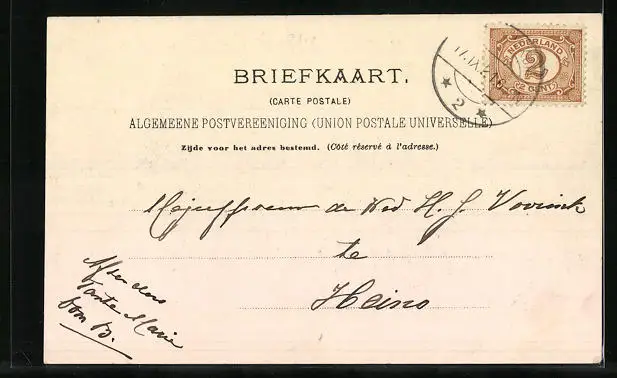 BRIEFKAART.
(CARTE POSTALE)
ALGEMEENE POSTVEREENIGING (UNION POSTALE UNIVERSELLE)
Zijde voor het adres bestemd. (Côté réservé à l'adresse.)
NEDERLAND
2
2 CENT
2
Mejuffrouw de Wed H. J. Vovinck
te
Heino
Tante Marie